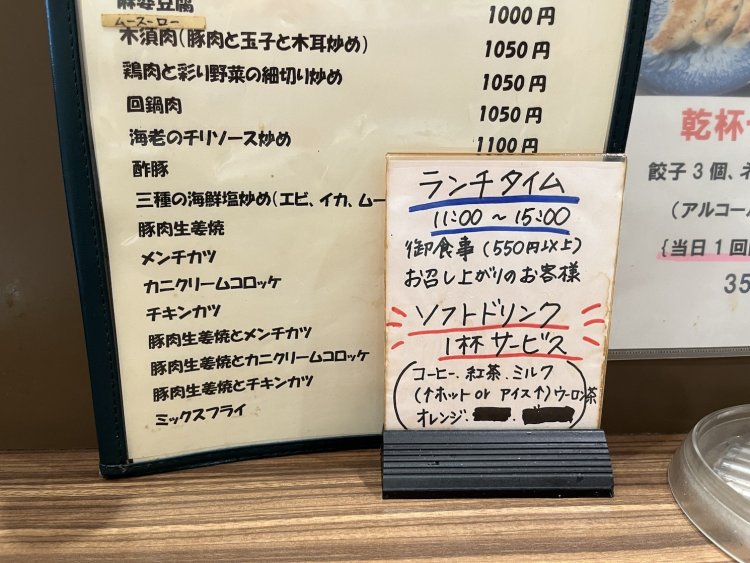 麻婆豆腐 1000円
ムースーロー
木須肉(豚肉と玉子と木耳炒め) 1050円
鶏肉と彩り野菜の細切り炒め 1050円
回鍋肉 1050円
海老のチリソース炒め 1100円
酢豚
三種の海鮮塩炒め(エビ、イカ、ムー
豚肉生姜焼
メンチカツ
カニクリームコロッケ
チキンカツ
豚肉生姜焼とメンチカツ
豚肉生姜焼とカニクリームコロッケ
豚肉生姜焼とチキンカツ
ミックスフライ
ランチタイム
11:00 ~ 15:00
御食事(550円以上)
お召し上がりのお客様
ソフトドリンク
1杯サービス
(コーヒー、紅茶、ミルク
(↑ホット or アイス↑)ウーロン茶
オレンジ、
乾杯
餃子3個、ネ
(アルコー
{当日1回
35